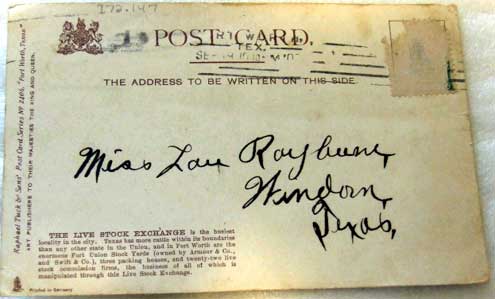 172.147
POST CARD.
TEX.
THE ADDRESS TO BE WRITTEN ON THIS SIDE.
Raphael Tuck & Sons' Post Card Series Nº 2406, "Fort Worth, Texas"
ART PUBLISHERS TO THEIR MAJESTIES THE KING AND QUEEN.
Miss Lou Rayburn,
Windom,
Texas,
THE LIVE STOCK EXCHANGE is the busiest
locality in the city. Texas has more cattle within its boundaries
than any other state in the Union, and in Fort Worth are the
enormous Fort Union Stock Yards (owned by Armour & Co.,
and Swift & Co.), three packing houses, and twenty-two live
stock commission firms, the business of all of which is
manipulated through this Live Stock Exchange.
Printed in Germany.